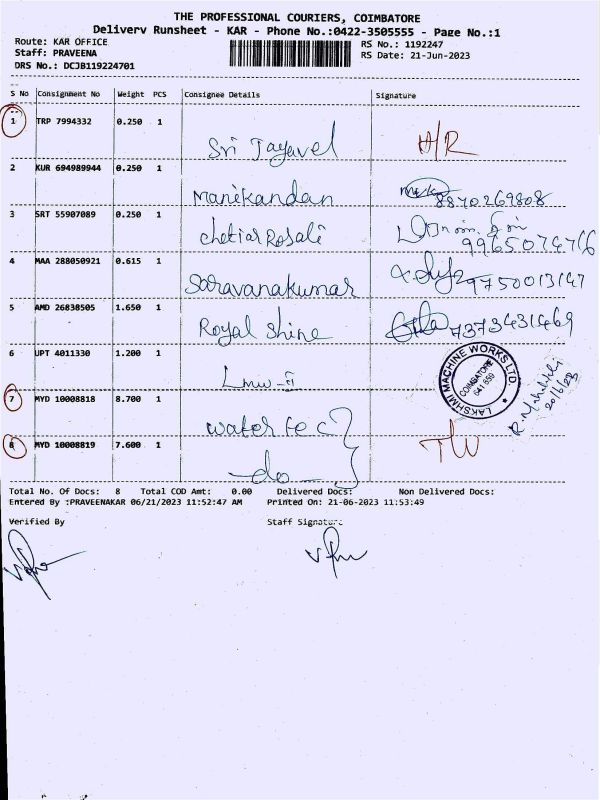 THE PROFESSIONAL COURIERS, COIMBATORE
Delivery Runsheet - KAR - Phone No.:0422-3505555 - Page No.:1
Route: KAR OFFICE
RS No.: 1192247
Staff: PRAVEENA
RS Date: 21-Jun-2023
DRS No.: DCJB119224701
S No Consignment No Weight PCS Consignee Details Signature
1 TRP 7994332 0.250 1
Sri Jayavel H/R
2 KUR 694989944 0.250 1
Manikandan 8870269808
3 SRT 55907089 0.250 1
chetiar Rosali
9965074766
4 MAA 288050921 0.615 1
Saravanakumar 9750013147
5 AMD 26838505 1.650 1
Royal Shine 7373431469
6 UPT 4011330 1.200 1
Lmw-ii
LAKSHMI MACHINE WORKS LTD.
COIMBATORE
641 659
20/6/23
7 MYD 10008818 8.700 1
water tec
8 MYD 10008819 7.600 1
-do-
Total No. Of Docs: 8 Total COD Amt: 0.00 Delivered Docs: Non Delivered Docs:
Entered By :PRAVEENAKAR 06/21/2023 11:52:47 AM Printed On: 21-06-2023 11:53:49
Verified By Staff Signature